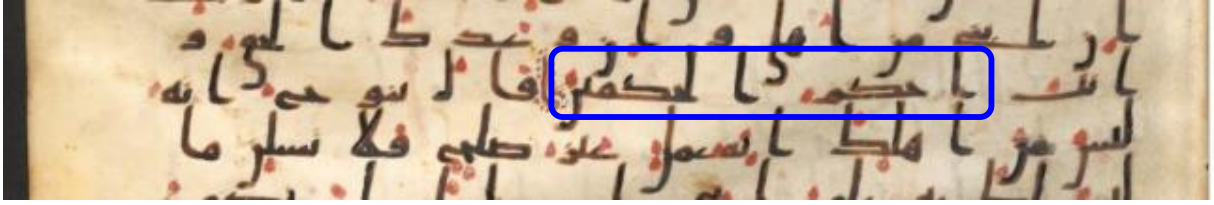 ان ابني من اهلي وان وعدك الحق و
انت احكم الحكمين قال ينوح انه
ليس من اهلك انه عمل غير صلح فلا تسلن ما